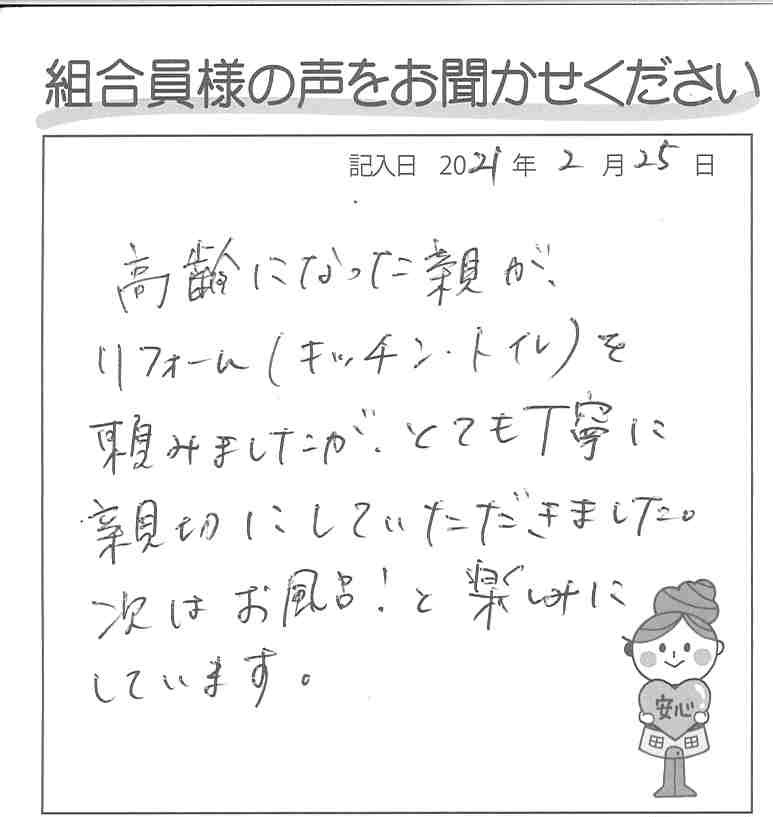 組合員様の声をお聞かせください
記入日 2021年 2月25日
高齢になった親が、
リフォーム(キッチン・トイレ)を
頼みましたが、とても丁寧に
親切にしていただきました。
次はお風呂!と楽しみに
しています。
安心